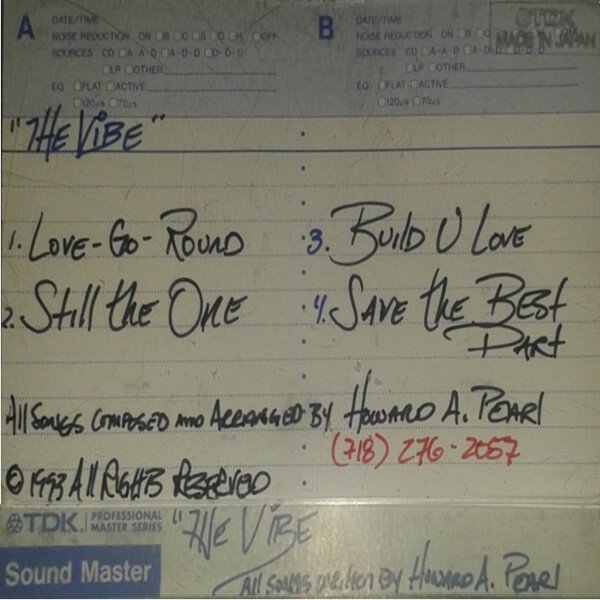 A DATE/TIME
NOISE REDUCTION ON B C S D H OFF
SOURCES CD A-A-D A-D-D D-D-D
LP OTHER
EQ FLAT ACTIVE
120µs 70µs
B DATE/TIME
NOISE REDUCTION ON B C
SOURCES CD A-A-D A-D
LP OTHER
EQ FLAT ACTIVE
120µs 70µs
TDK
MADE IN JAPAN
"THE VIBE"
1. LOVE-GO-ROUND
2. Still the ONE
3. Build U LOVE
4. SAVE the BEST
PART
All SONGS COMPOSED AND ARRANGED BY HOWARD A. PEARl
(718) 276-2057
© 1993 All RIGHTS RESERVED
TDK PROFESSIONAL MASTER SERIES
Sound Master
"THE VIBE
All SONGS written BY HOWARD A. PEARl